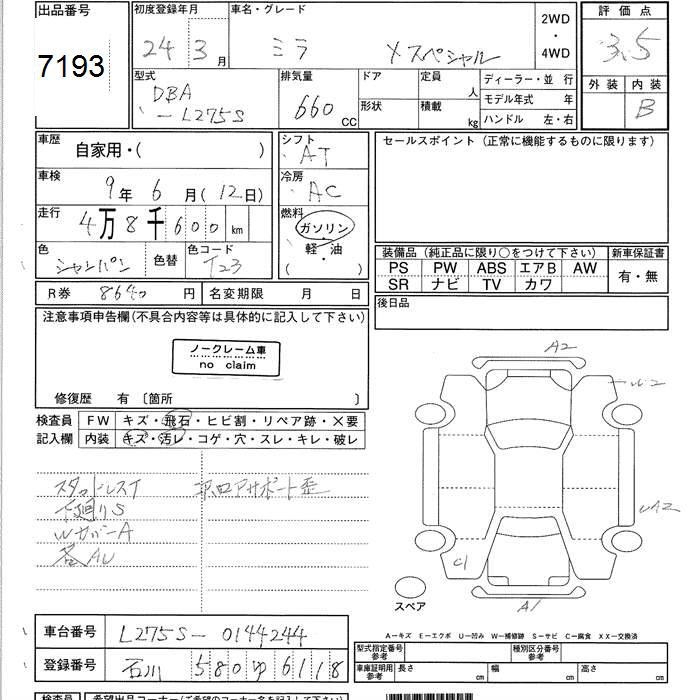 出品番号
7193
初度登録年月
24 3月
車名・グレード
ミラ Xスペシャル
2WD
・
4WD
評価点
3.5
外装 内装
B
型式
DBA
-L275S
排気量
660 CC
ドア
形状
定員 人
積載 kg
ディーラー・並 行
モデル年式 年
ハンドル 左・右
車歴
自家用・( )
シフト
AT
車検
9年 6月(12日)
冷房
AC
走行
4万8千600km
燃料
ガソリン
・
軽・油
( )
色
シャンパン
色替
色コード
T23
R券 8640円
名変期限 月 日
セールスポイント (正常に機能するものに限ります)
装備品 (純正品に限り○をつけて下さい)
新車保証書
PS PW ABS エアB AW
SR ナビ TV カワ
有・無
後日品
注意事項申告欄(不具合内容等は具体的に記入して下さい)
ノークレーム車
no claim
修復歴 有 〔箇所 〕
検査員
記入欄
FW キズ・飛石・ヒビ割・リペア跡・×要
内装 キズ・汚レ・コゲ・穴・スレ・キレ・破レ
スタッドレスT
下廻りS
WカバーA
各AU
A2
UA2
C1
A1
スペア
A-キズ E-エクボ U-凹み W-補修跡 S-サビ C-腐食 XX-交換済
車台番号 L275S-0144244
登録番号 石川 580 ゆ 6118
型式指定番号
参考
種別区分番号
参考
車庫証明用
参考
長さ cm
幅 cm
高さ cm
検査員
希望出品コーナー(ご希望のコーナー名を記入して下さい)